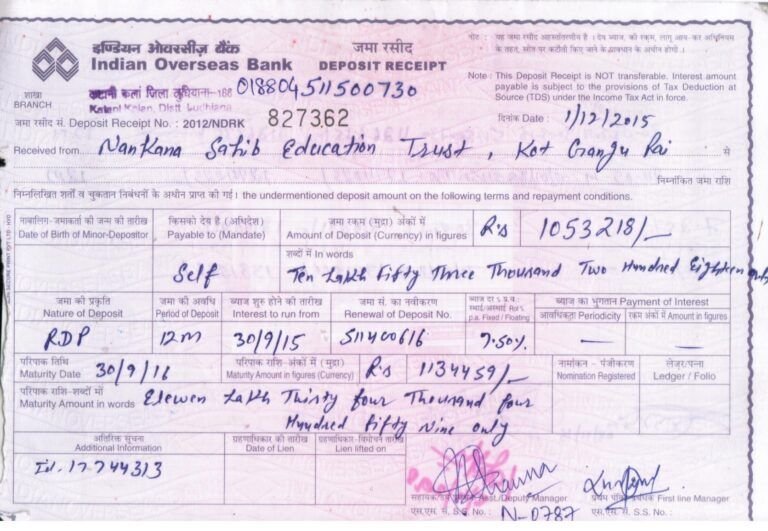 इण्डियन ओवरसीज़ बैंक
Indian Overseas Bank
जमा रसीद
DEPOSIT RECEIPT
नोट : यह जमा रसीद अहस्तांतरणीय है । देय ब्याज, की रकम, लागू आय-कर अधिनियम
के तहत, स्रोत पर कटौती किए जाने के प्रावधान के अधीन होगी ।
Note : This Deposit Receipt is NOT transferable. Interest amount
payable is subject to the provisions of Tax Deduction at
Source (TDS) under the Income Tax Act in force.
शाखा
BRANCH
कटानी कलां जिला लुधियाना-
Katani Kalan, Distt Ludhiana
018804511500730
जमा रसीद सं. Deposit Receipt No. : 2012/NDRK 827362
दिनांक Date : 1/12/2015
Received from Nankana Sahib Education Trust, Kot Gangu Rai से
निम्नांकित जमा राशि
निम्नलिखित शर्तों व चुकतान निबंधनों के अधीन प्राप्त की गई । the undermentioned deposit amount on the following terms and repayment conditions.
नाबालिग-जमाकर्ता की जन्म की तारीख
Date of Birth of Minor-Depositor
किसको देय है (अधिदेश)
Payable to (Mandate)
Self
जमा रकम (मुद्रा) अंकों में
Amount of Deposit (Currency) in figures
R.s 1053218/-
शब्दों में In words
Ten Lakh Fifty Three Thousand Two Hundred Eighteen only
जमा की प्रकृति
Nature of Deposit
RDP
जमा की अवधि
Period of Deposit
12M
ब्याज शुरु होने की तारीख
Interest to run from
30/9/15
जमा सं. का नवीकरण
Renewal of Deposit No.
511400616
ब्याज दर % प्र.व.
स्थाई/अस्थाई RoI %
p.a. Fixed / Floating
7.50%
ब्याज का भुगतान Payment of Interest
आवधिकता Periodicity
—
रकम अंकों में Amount in figures
—
परिपाक तिथि
Maturity Date 30/9/16
परिपाक राशि-अंकों में (मुद्रा)
Maturity Amount in figures (Currency)
R.s 1134459/-
नामांकन - पंजीकरण
Nomination Registered
लेज़र/पन्ना
Ledger / Folio
परिपाक राशि-शब्दों में
Maturity Amount in words Elewen Lakh Thirty four Thousand four
Hundred fifty Nine only
अतिरिक्त सूचना
Additional Information
Id. 17744313
ग्रहणाधिकार की तारीख
Date of Lien
ग्रहणाधिकार-विमोचन तारीख
Lien lifted on
Asst./Deputy Manager
First line Manager
एस.एस. सं. S.S. No. : N-0787
एस.एस. सं. S.S. No. :